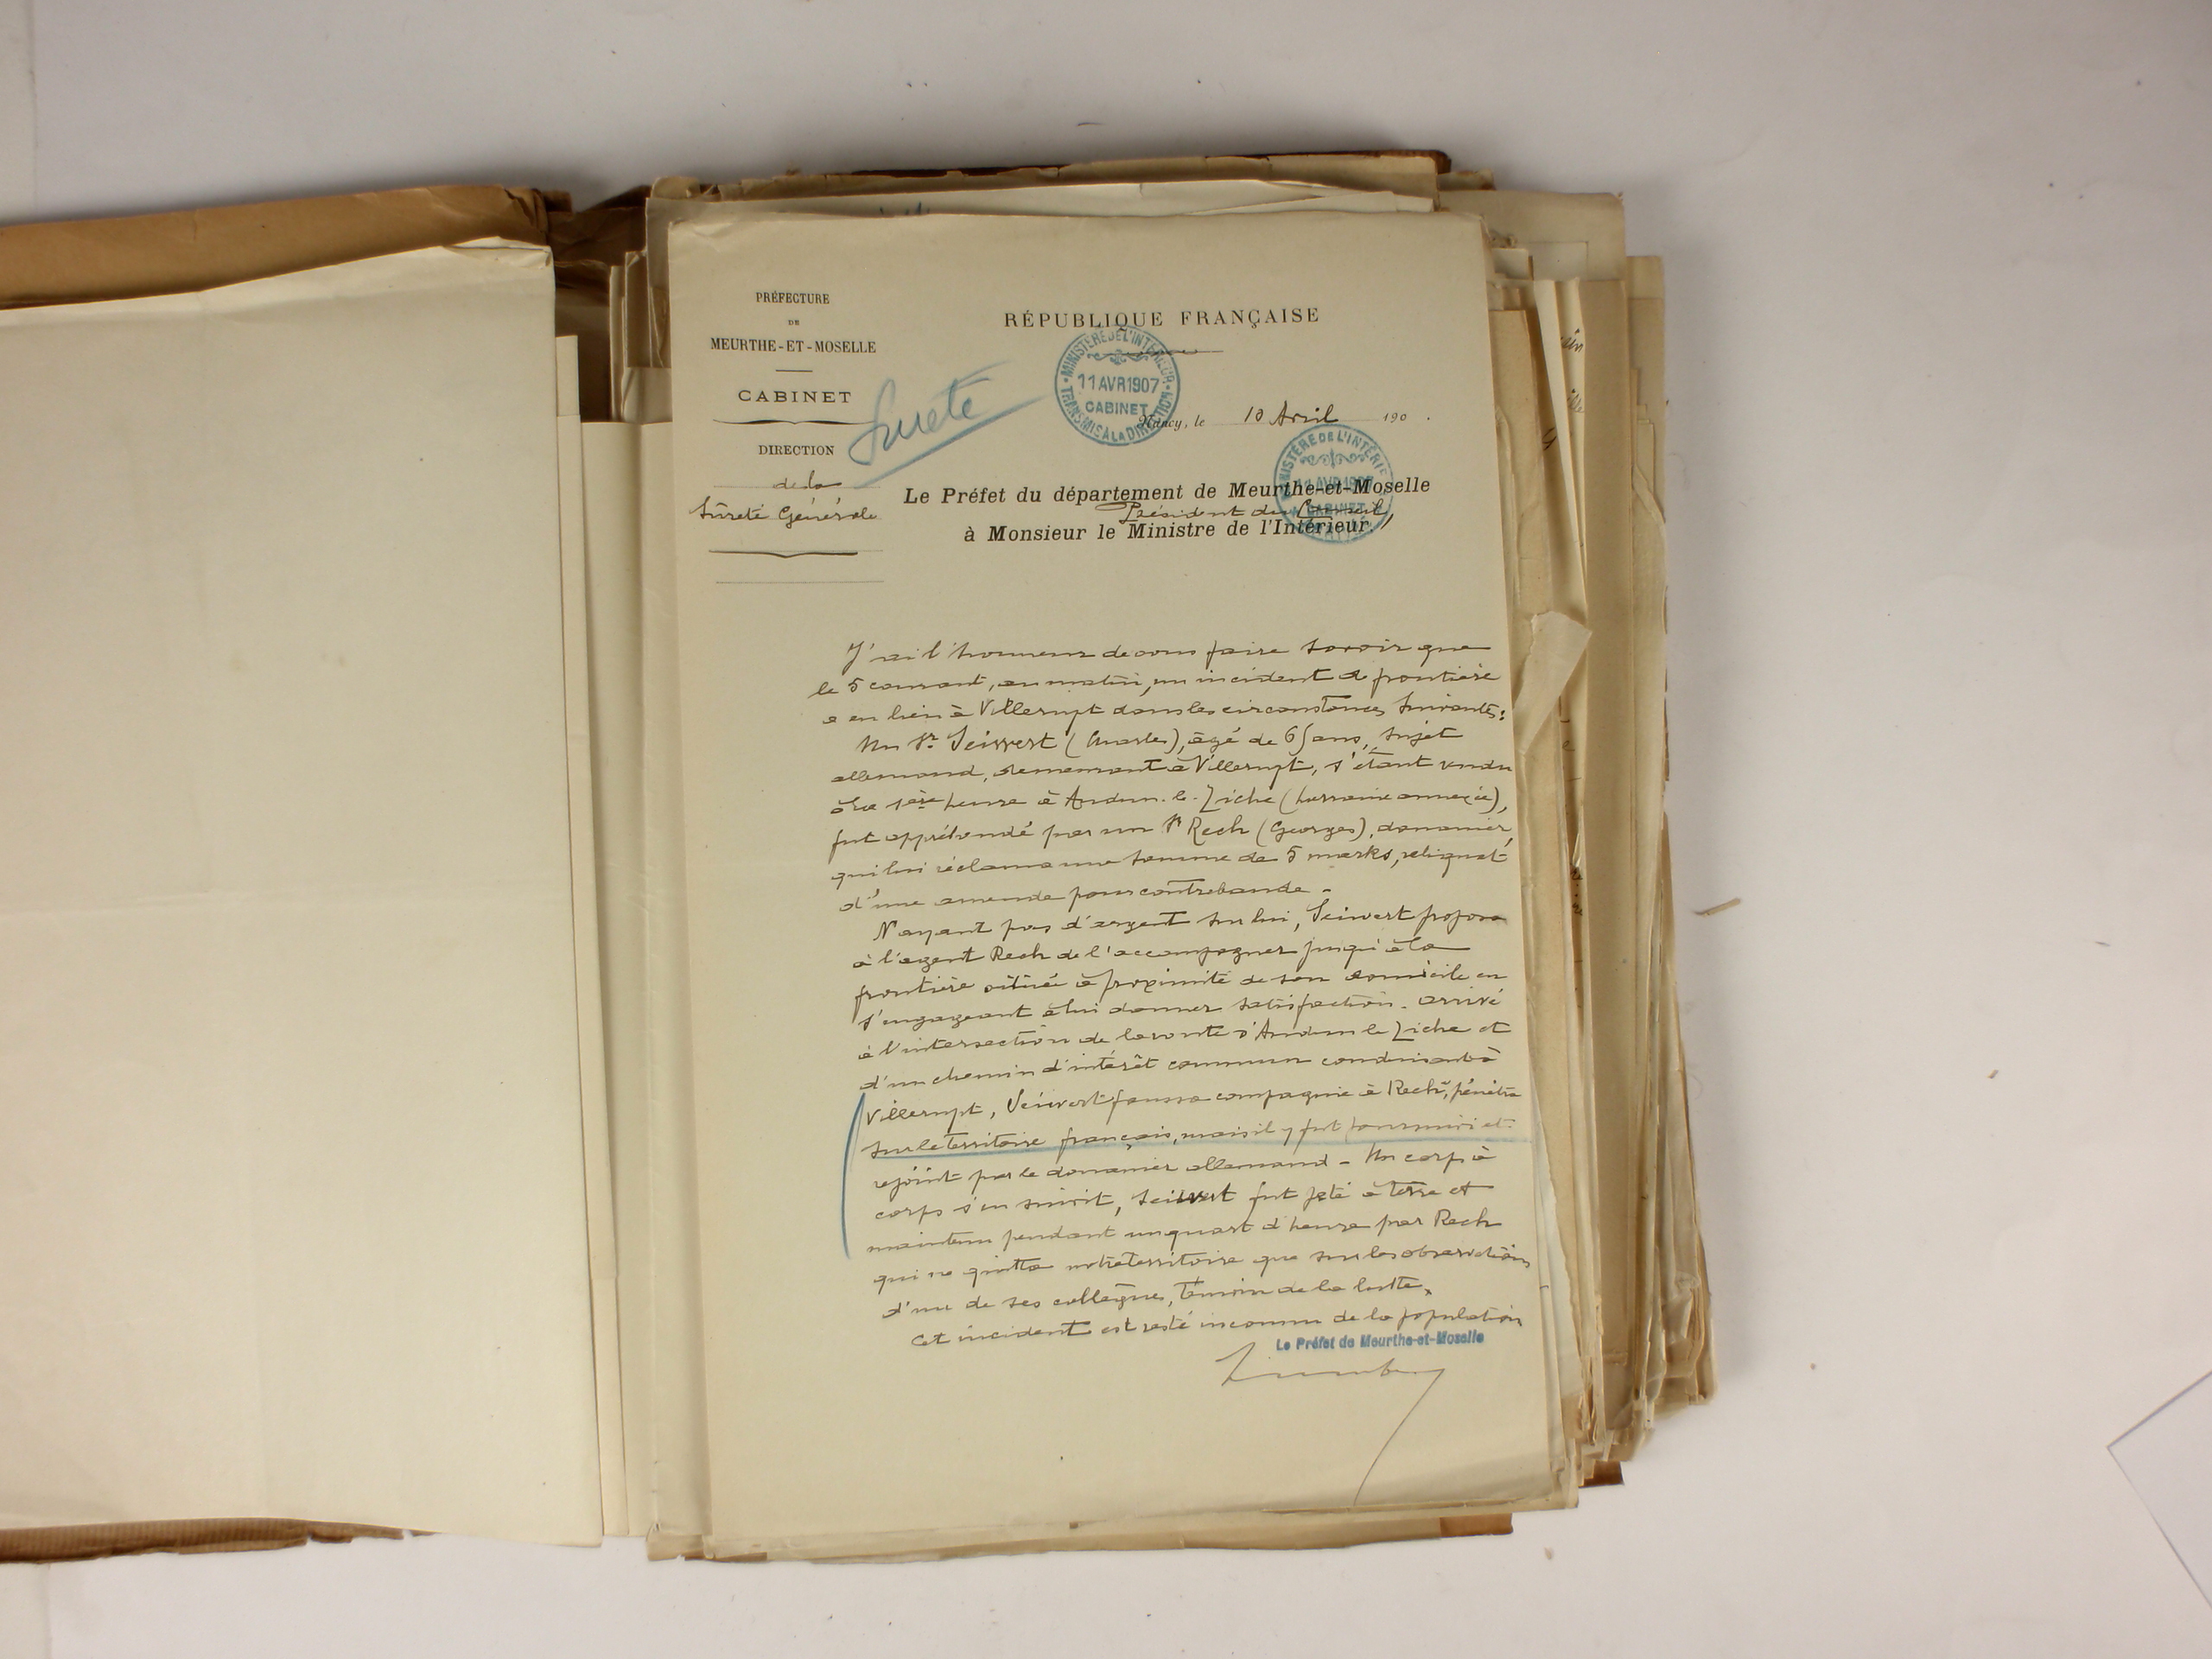 PRÉFECTURE
DE
MEURTHE-ET-MOSELLE
CABINET
DIRECTION
de la
Sûreté Générale
Sureté
RÉPUBLIQUE FRANÇAISE
MINISTÈRE DE L'INTÉRIEUR
11 AVR 1907
CABINET
TRANSMIS A LA DIRECTION
Nancy, le 10 Avril 190 .
MINISTÈRE DE L'INTÉRIEUR
CABINET
Le Préfet du département de Meurthe-et-Moselle
Président du Conseil,
à Monsieur le Ministre de l'Intérieur.
J'ai l'honneur de vous faire savoir que
le 5 courant, au matin, un incident de frontière
a eu lieu à Villerupt dans les circonstances suivantes:
Un Sr Seivert (Charles), âgé de 65 ans, sujet
allemand, demeurant à Villerupt, s'étant rendu
à la 1ère heure à Audun-le-Tiche (Lorraine annexée),
fut appréhendé par un Sr Rech (Georges), douanier,
qui lui réclama une somme de 5 marks, reliquat
d'une amende pour contrebande.
N'ayant pas d'argent sur lui, Seivert proposa
à l'agent Rech de l'accompagner jusqu'à la
frontière située à proximité de son domicile en
s'engageant à lui donner satisfaction. Arrivé
à l'intersection de la route d'Audun le Tiche et
d'un chemin d'intérêt commun conduisant à
Villerupt, Seivert faussa compagnie à Rech, pénétra
sur le territoire français, mais il y fut poursuivi et
rejoint par le douanier allemand - Un corps à
corps s'en suivit, Seivert fut jeté à terre et
maintenu pendant un quart d'heure par Rech
qui ne quitta notre territoire que sur les observations
d'un de ses collègues, témoin de la lutte.
Cet incident est resté inconnu de la population
Le Préfet de Meurthe-et-Moselle